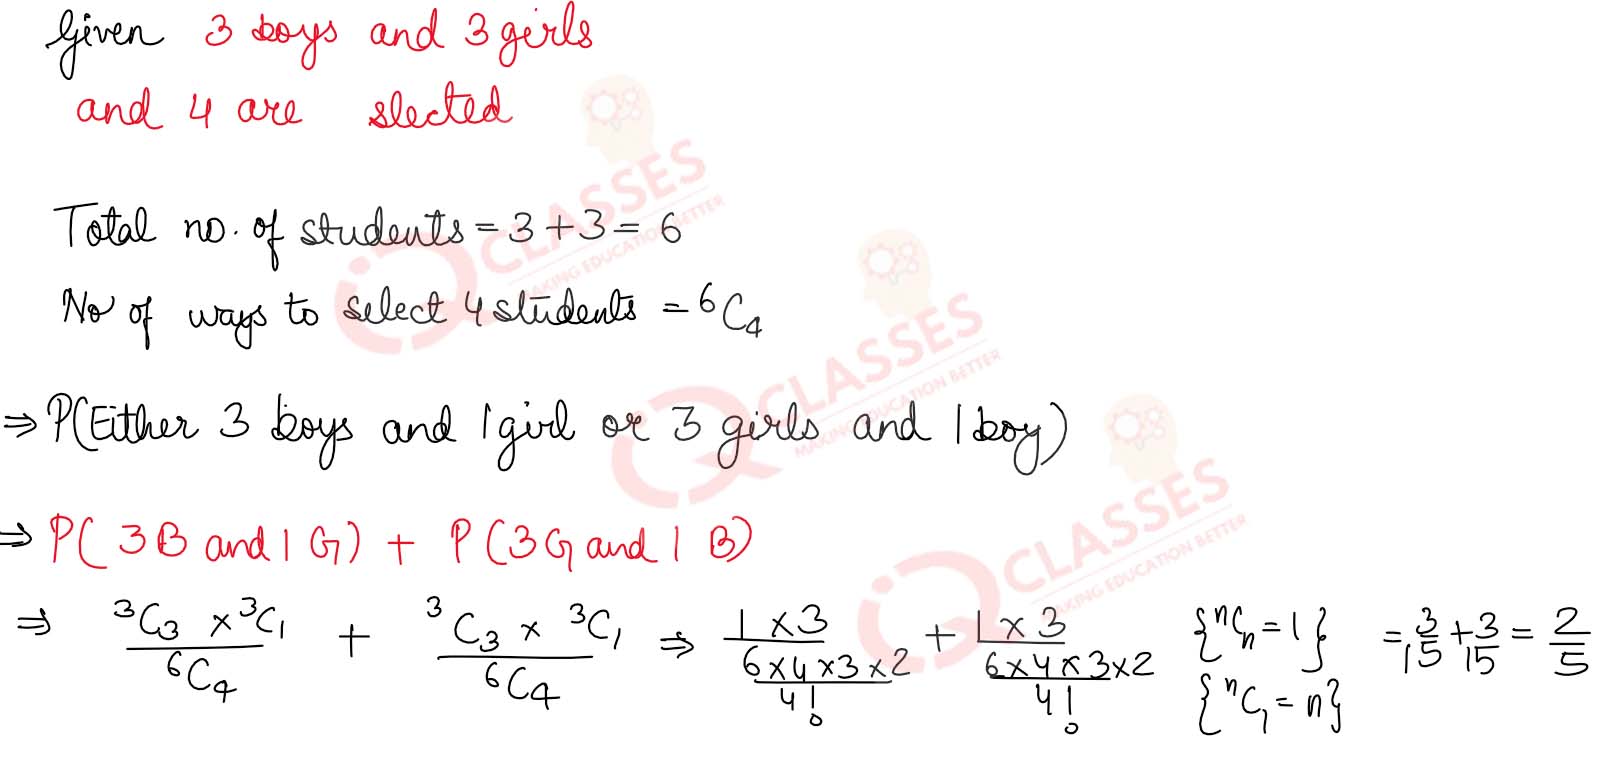 Given 3 boys and 3 girls
and 4 are slected
Total no. of students = 3 + 3 = 6
No of ways to select 4 students = ⁶C₄
⇒ P(Either 3 boys and 1 girl or 3 girls and 1 boy)
⇒ P( 3B and 1 G) + P (3G and 1 B)
⇒ (³C₃ × ³C₁)/⁶C₄ + (³C₃ × ³C₁)/⁶C₄ ⇒ (1 × 3)/((6×4×3×2)/4!) + (1 × 3)/((6×4×3×2)/4!) {ⁿCₙ = 1} = 3/15 + 3/15 = 2/5
{ⁿC₁ = n}
iQ CLASSES
MAKING EDUCATION BETTER
iQ CLASSES
MAKING EDUCATION BETTER
iQ CLASSES
MAKING EDUCATION BETTER